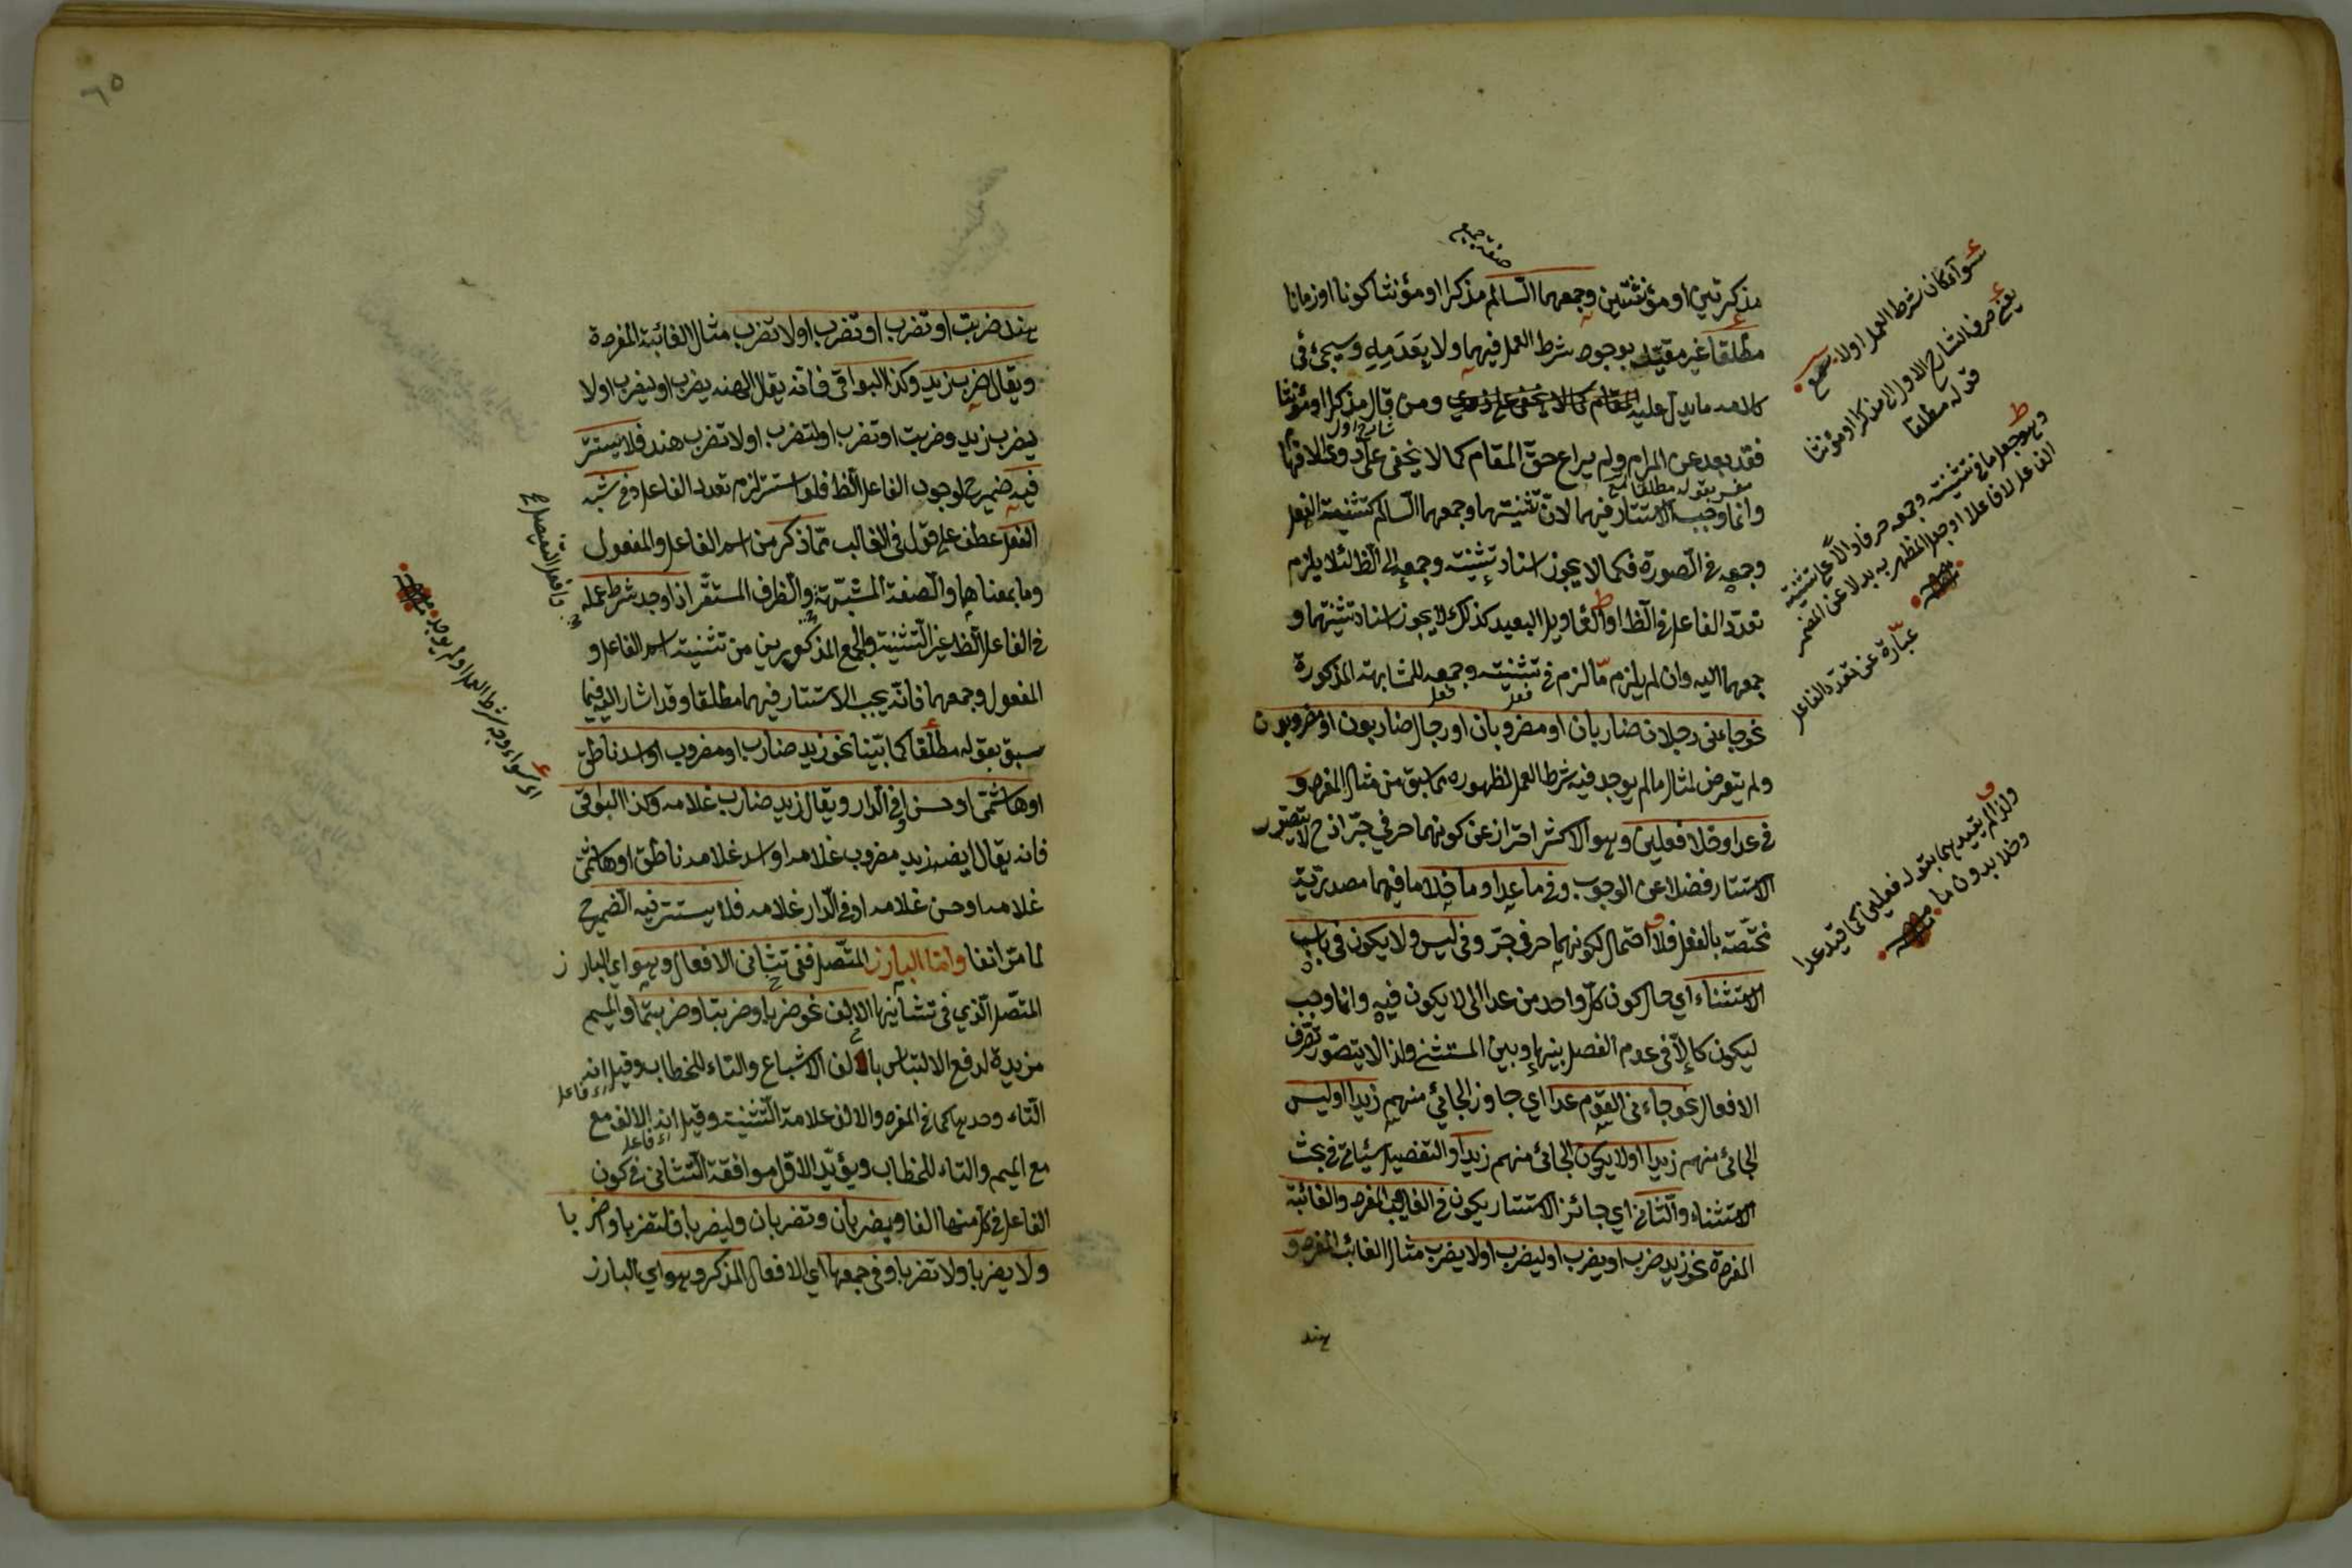 مذكرتين او مؤنثتين وجمعهما السالم مذكرا او مؤنثا كونا او زمانا
مطلقا غير مقيد بوجود شرط العمل فيهما ولا بعدمه وسيجئ في
كلامه ما يدل عليه ومن قال مذكرا او مؤنثا
فقد بعد عن المرام ولم يراع حق المقام كما لا يخفى على ذوى الافهام
وانما وجب الاستتار فيهما لان تثنيتهما وجمعهما السالم كتثنية الفعل
وجمعه في الصورة فكما لا يجوز اسناد تثنيته وجمعه الى الظ لئلا يلزم
تعدد الفاعل في الظ او التأويل البعيد كذلك لا يجوز اسناد تثنيتهما و
جمعهما اليه وان لم يلزم ما لزم في تثنيته وجمعه للمشابهة المذكورة
نحو جاءنى رجلان ضاربان او مضروبان او رجال ضاربون او مضروبون
ولم يتعرض لمثال ما لم يوجد فيه شرط العمل لظهوره مما سبق من مثال المفرد و
في عدا وخلا فعلين وهو الاكثر احتراز عن كونهما حرفي جر اذ ح لا يتصور
الاستتار فضلا عن الوجوب وفي ما عدا وما خلا ما فيهما مصدرية
مختصة بالفعل فلا احتمال لكونهما حرفي جر وفي ليس ولا يكون في باب
الاستثناء اي حال كون كل واحد من عدا الى لا يكون فيه وانما وجب
ليكون كالا في عدم الفصل بينها وبين المستثنى ولذا لا يتصور تصرف
الافعال نحو جاءنى القوم عدا اي جاوز الجائي منهم زيدا او ليس
الجائي منهم زيدا او لا يكون الجائي منهم زيدا والتفصيل سيأتي في بحث
الاستثناء والثاني اي جائز الاستتار يكون في الغائب المفرد والغائبة
المفردة نحو زيد ضرب او يضرب او ليضرب او لا يضرب مثال الغائب المفرد و
هند
صفة جمع
شارح اول
مفسر بقوله مطلقا
فعل
فعل
سواء كان شرط العمل اولا
يعني صرف الشارح الاول الى مذكرا او مؤنثا
قوله مطلقا
وهو جعل ما في تثنيته وجمعه حرفا دالا على تثنية
الفاعل لا فاعلا او جعل المظهر به بدلا عن المضمر
عبارة عن تعدد الفاعل
ولذا لم يقيدهما بقوله فعلين كما قيد عدا
وخلا بدون ما
٦٥
هند ضربت او تضرب او تضرب او لا تضرب مثال الغائبة المفردة
ويقال ضرب زيد وكذا البواقى فانه يقال ايضه يضرب او ليضرب او لا
يضرب زيد وضربت او تضرب او لتضرب او لا تضرب هند فلا يستتر
فيه ضمير ح لوجوب الفاعل الظ فلو استتر لزم تعدد الفاعل وفي شبه
الفعل عطف على قوله في الغائب مما ذكر من اسم الفاعل والمفعول
وما بمعناهما والصفة المشبهة والظرف المستقر اذا وجد شرط عمله
في الفاعل الظ غير التثنية والجمع المذكورين من تثنية اسم الفاعل و
المفعول وجمعهما فانه يجب الاستتار فيهما مطلقا وقد اشار اليه فيما
سبق بقوله مطلقا كما بينا نحو زيد ضارب او مضروب او اسد ناطق
او هاشمى او حسن او في الدار ويقال زيد ضارب غلامه وكذا البواقى
فانه يقال ايضه زيد مضروب غلامه او اسد غلامه ناطق او هاشمى
غلامه او حسن غلامه او في الدار غلامه فلا يستتر فيه الضمير ح
لما مر انفا واما البارز المتصل ففي تثانى الافعال وهو اي البارز
المتصل الذي في تثانيها الالف نحو ضربا وضربتا وضربتما والميم
مزيدة لدفع الالتباس بالف الاشباع والتاء للخطاب وقيل انه
التاء وحدها كما في المفرد والالف علامة التثنية وقيل انه الالف مع
مع الميم والتاء للخطاب ويؤيد الاول موافقة التثانى في كون
الفاعل في كل منها الفا ويضربان وتضربان وليضربا ولتضربا واضربا
ولا يضربا ولا تضربا وفي جمعها اي الافعال المذكر وهو اي البارز
اي فاعل
اي فاعل
اي سواء وجد شرط العمل او لم يوجد